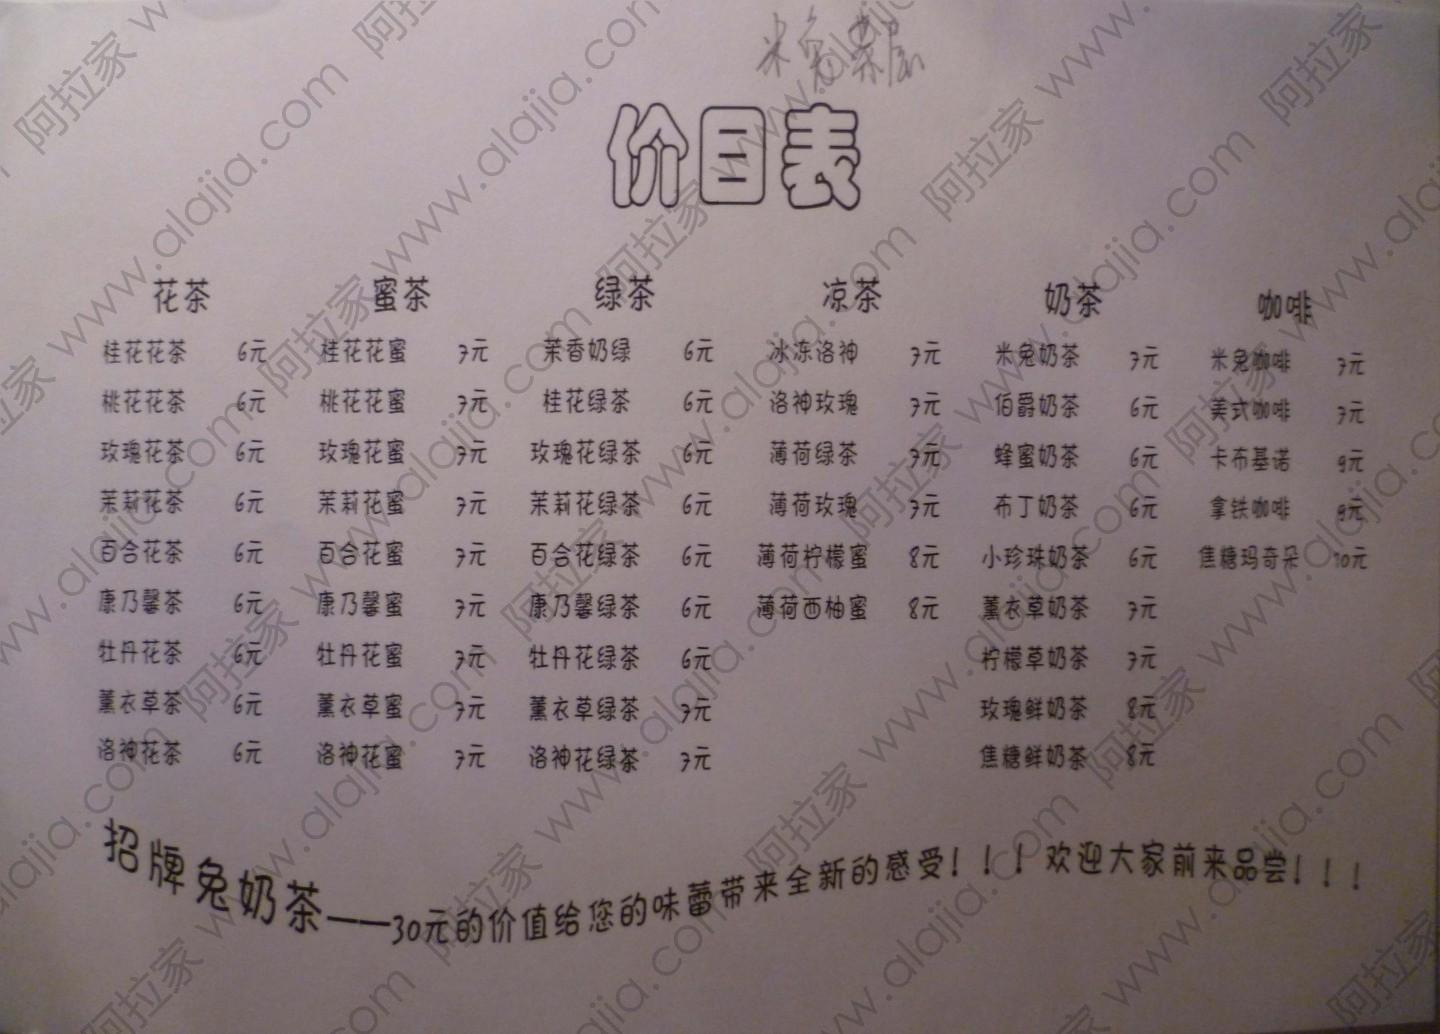 米兔茶居
价目表
花茶 蜜茶 绿茶 凉茶 奶茶 咖啡
桂花花茶 6元 桂花花蜜 7元 茉香奶绿 6元 冰冻洛神 7元 米兔奶茶 7元 米兔咖啡 7元
桃花花茶 6元 桃花花蜜 7元 桂花绿茶 6元 洛神玫瑰 7元 伯爵奶茶 6元 美式咖啡 7元
玫瑰花茶 6元 玫瑰花蜜 7元 玫瑰花绿茶 6元 薄荷绿茶 7元 蜂蜜奶茶 6元 卡布基诺 9元
茉莉花茶 6元 茉莉花蜜 7元 茉莉花绿茶 6元 薄荷玫瑰 7元 布丁奶茶 6元 拿铁咖啡 9元
百合花茶 6元 百合花蜜 7元 百合花绿茶 6元 薄荷柠檬蜜 8元 小珍珠奶茶 6元 焦糖玛奇朵 10元
康乃馨茶 6元 康乃馨蜜 7元 康乃馨绿茶 6元 薄荷西柚蜜 8元 薰衣草奶茶 7元
牡丹花茶 6元 牡丹花蜜 7元 牡丹花绿茶 6元 柠檬草奶茶 7元
薰衣草茶 6元 薰衣草蜜 7元 薰衣草绿茶 7元 玫瑰鲜奶茶 8元
洛神花茶 6元 洛神花蜜 7元 洛神花绿茶 7元 焦糖鲜奶茶 8元
招牌兔奶茶——30元的价值给您的味蕾带来全新的感受！！！欢迎大家前来品尝！！！
阿拉家 www.alajia.com